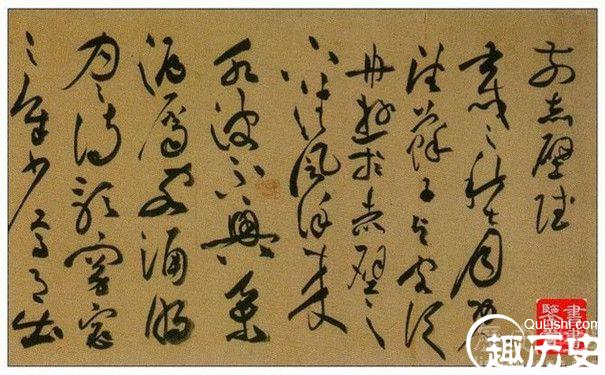 前赤壁賦
壬戌之秋七月既
望蘇子與客泛
舟遊於赤壁之
下清風徐來
水波不興舉
酒屬客誦明
月之詩歌窈窕
之章少焉月出
QuLishi.com
趣历史